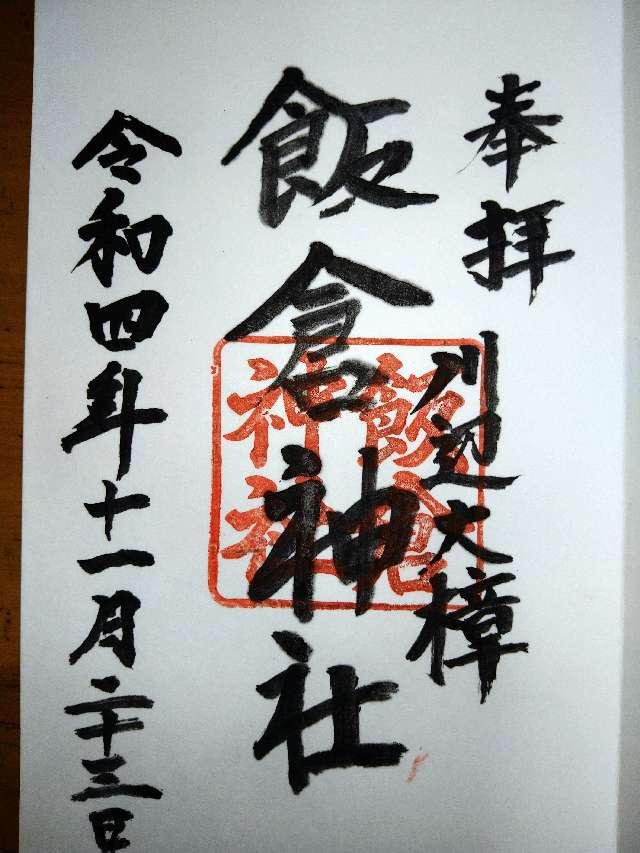 奉拝
川辺大樟
飯倉神社
飯倉
神社
令和四年十一月二十三日